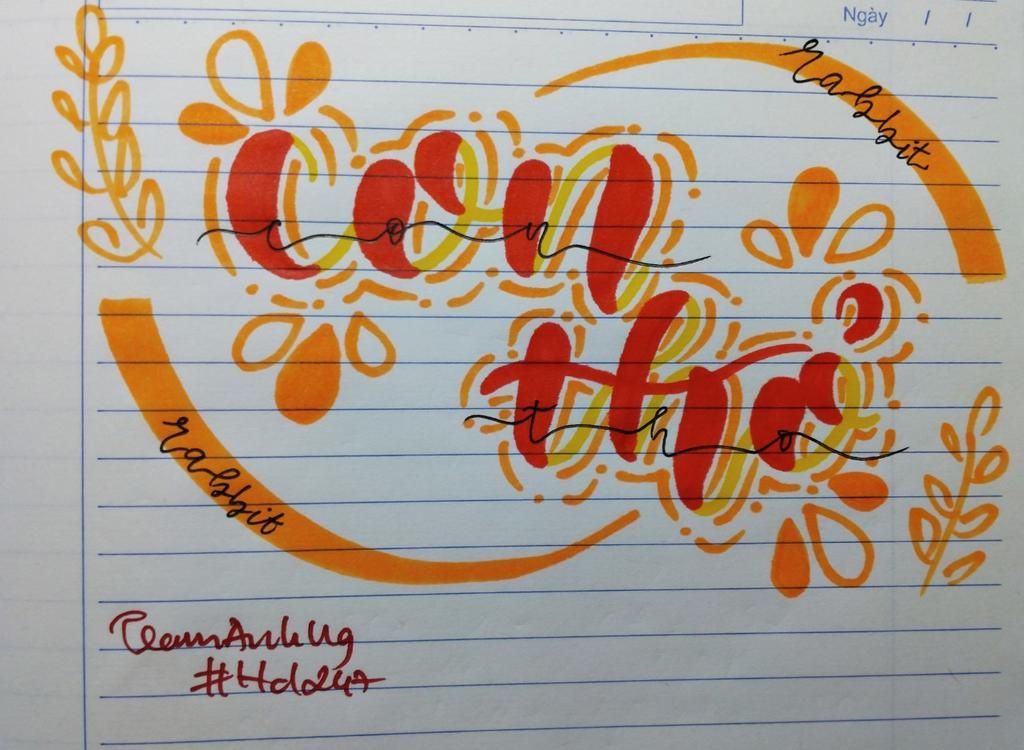 Ngày / /
rabbit
con
con
thỏ
tho
rabbit
TeamAnhUg